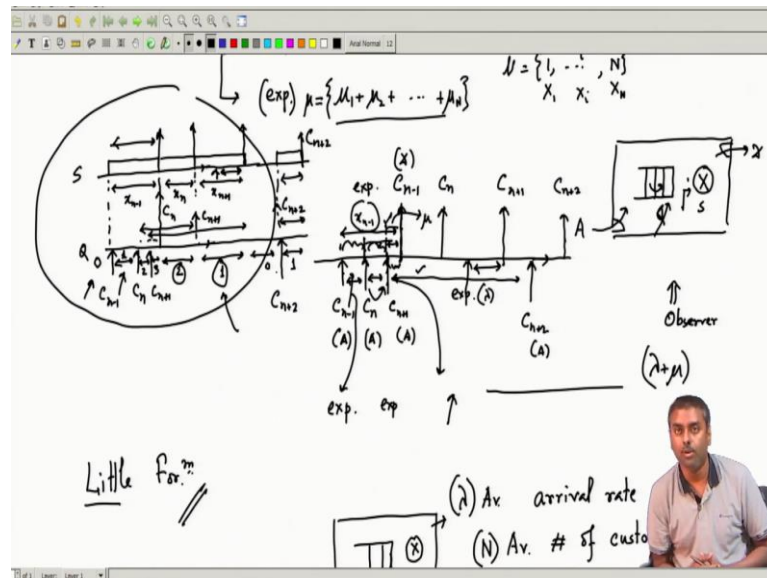 Arial Normal 12
(exp.) μ = {μ₁ + μ₂ + ... + μ_N}
N = {1, ..., N}
X₁ X_i X_N
S
C_{n+2}
x_{n-1} x_n x_{n+1}
C_n C_{n+1} C_{n+2}
Q
0 1 2 3 2 1 0 1
C_{n-1} C_n C_{n+1} C_{n+2}
(X)
exp. C_{n-1} C_n C_{n+1} C_{n+2}
x_{n-1} μ
exp. (λ)
C_{n-1} C_n C_{n+1} C_{n+2}
(A) (A) (A) (A)
exp. exp
A
X
S
Observer
(λ+μ)
Little For.m
(λ) Av. arrival rate
(N) Av. # of custo
X
1 of 1 Layer: Layer 1